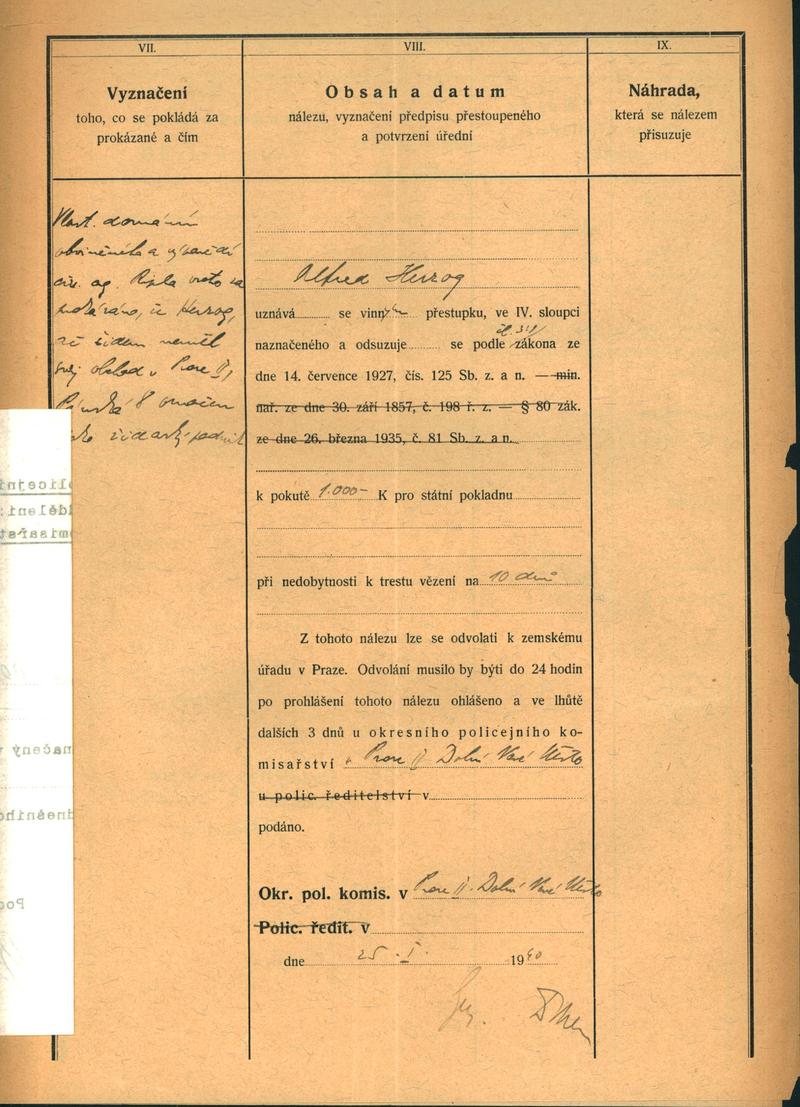 VII.
Vyznačení
toho, co se pokládá za
prokázané a čím
VIII.
Obsah a datum
nálezu, vyznačení předpisu přestoupeného
a potvrzení úřední
IX.
Náhrada,
která se nálezem
přisuzuje
Vlast. doznáním
obviněného a
Herzog,
že židem neměl
svůj obchod v Praze II,
8 označen
jako židovský podnik
Alfred Herzog
uznává se vinným přestupku, ve IV. sloupci
naznačeného a odsuzuje se podle čl. 3/1 zákona ze
dne 14. července 1927, čís. 125 Sb. z. a n. — min.
nař. ze dne 30. září 1857, č. 198 ř. z. — § 80 zák.
ze dne 26. března 1935, č. 81 Sb. z. a n.
k pokutě 1.000- K pro státní pokladnu
při nedobytnosti k trestu vězení na 10 dnů
Z tohoto nálezu lze se odvolati k zemskému
úřadu v Praze. Odvolání musilo by býti do 24 hodin
po prohlášení tohoto nálezu ohlášeno a ve lhůtě
dalších 3 dnů u okresního policejního ko-
misařství v Praze II Dolní Nové Město
u polic. ředitelství v
podáno.
Okr. pol. komis. v Praze II. Dolní Nové Město
Polic. ředit. v
dne 25. I. 1940